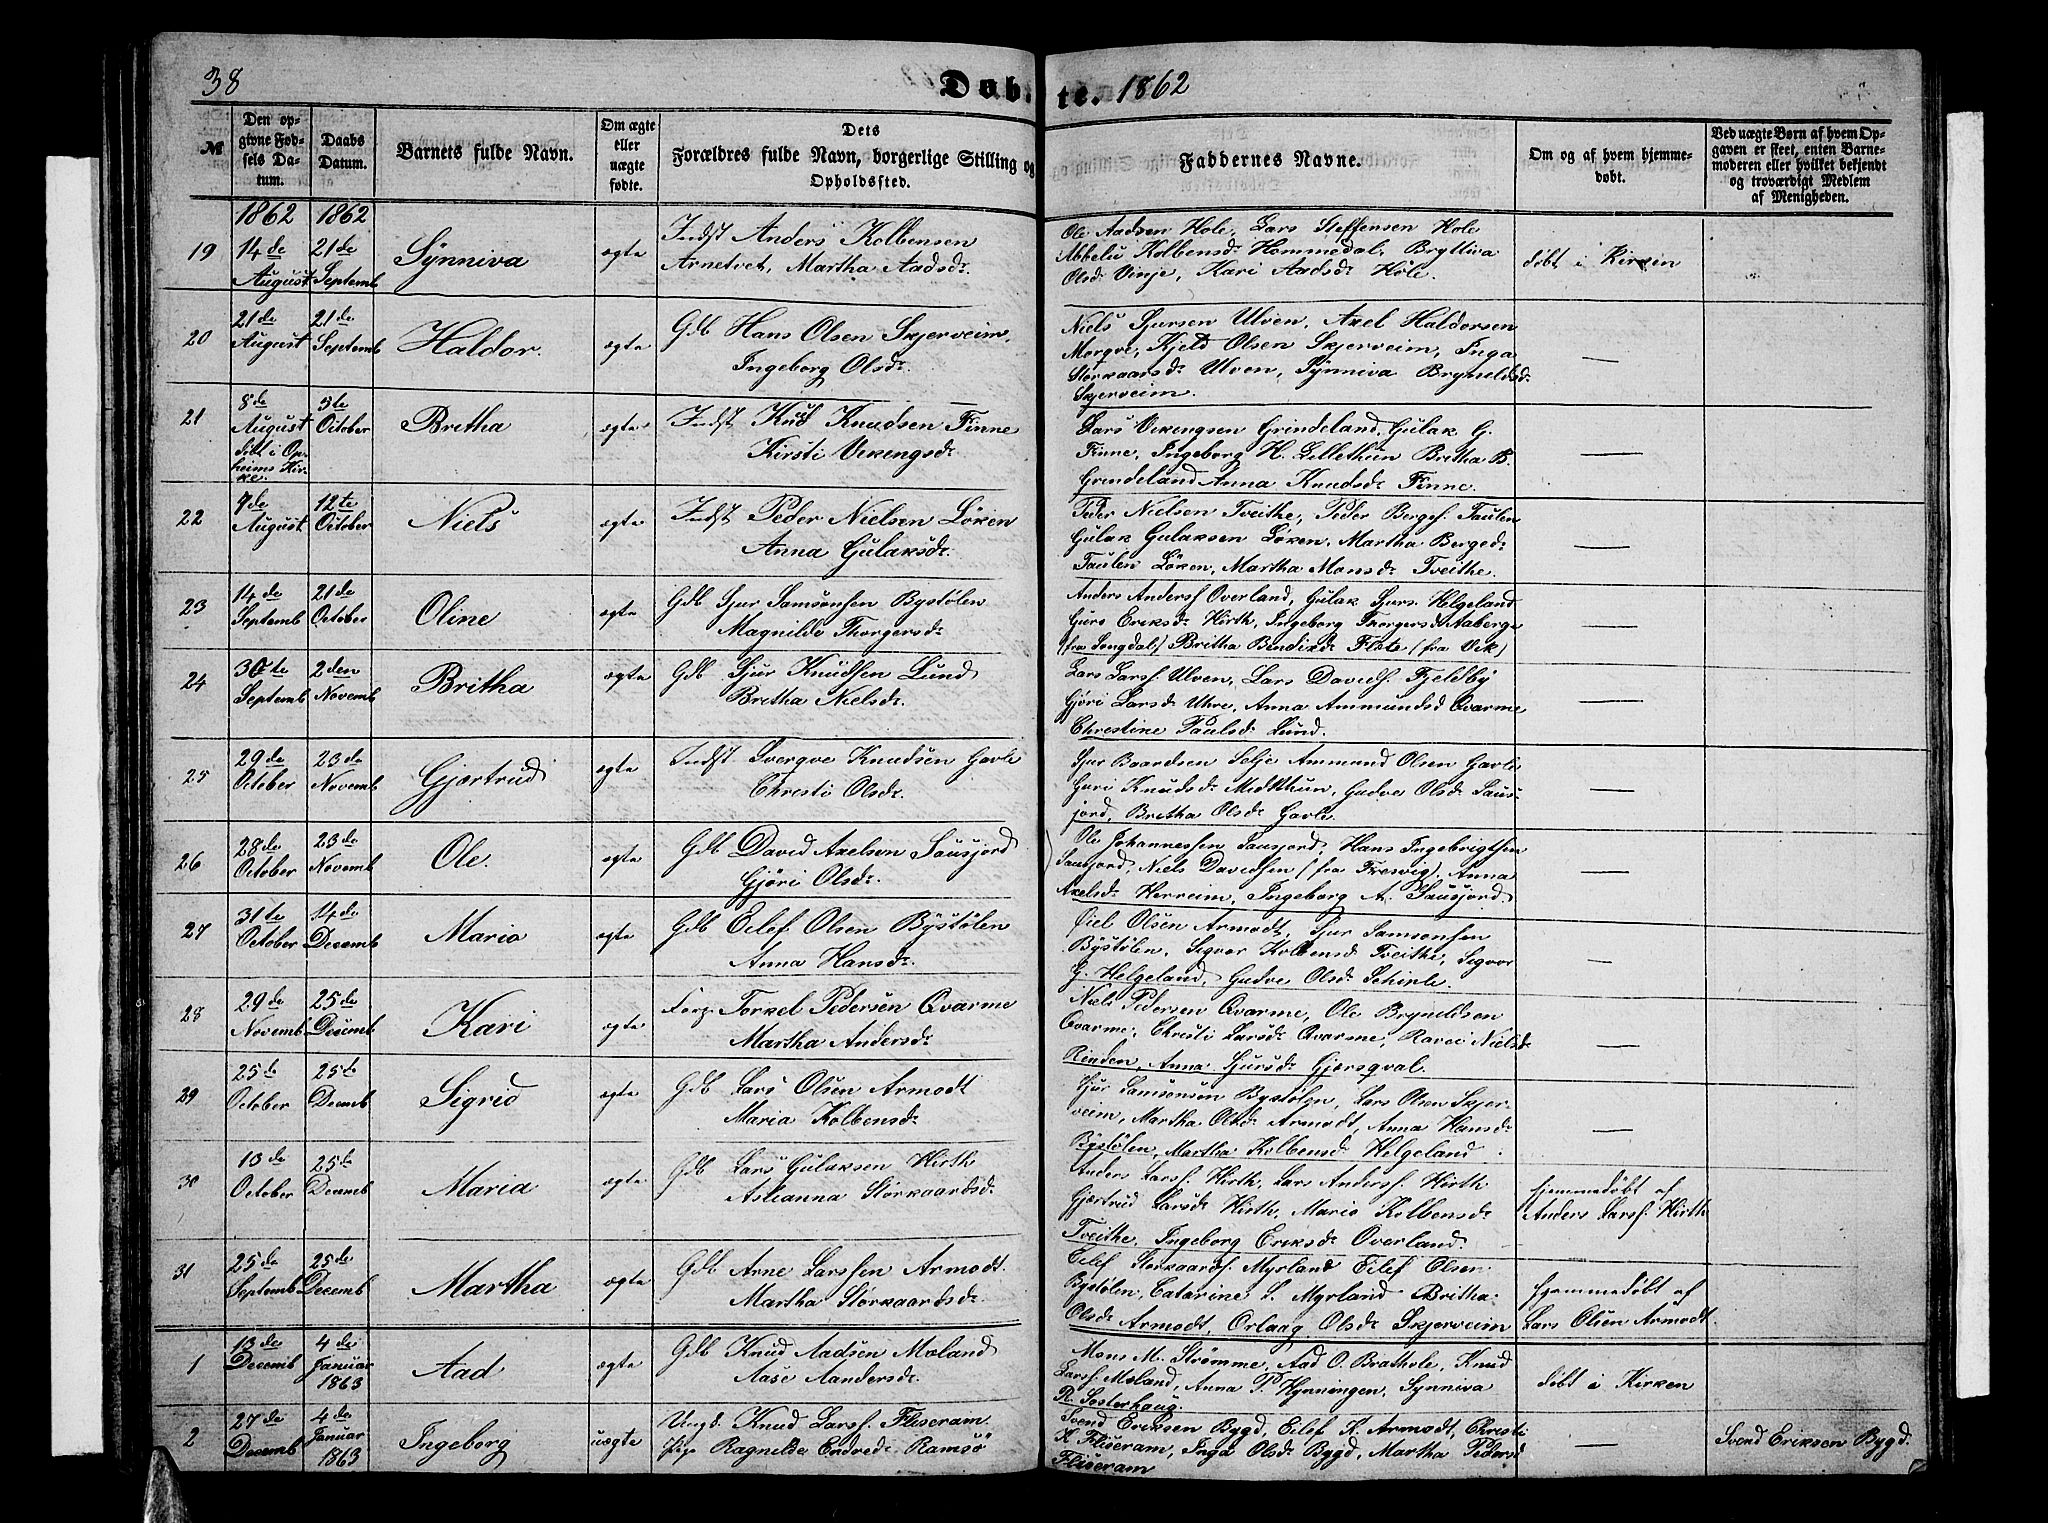 38
Døb- te. 1862
№
Den op-
givne Fød-
sels Da-
tum.
Daabs
Datum.
Barnets fulde Navn.
Om ægte
eller
uægte
fødte.
Dets
Forældres fulde Navn, borgerlige Stilling og
Opholdssted.
Faddernes Navne.
Om og af hvem hjemme-
døbt.
Ved uægte Børn af hvem Op-
gaven er skeet, enten Barne-
moderen eller hvilket bekjendt
og troværdigt Medlem
af Menigheden.
1862 1862
19
14de
August
21de
Septemb
Synniva
ægte
Indst Anders Kolbensen
Arnetvet, Martha Aadsdr.
Ole Aadsen Hole, Lars Steffensen Hole
Abbelu Kolbensdr Hommedal, Bryttiva
Olsdr Vinje, Kari Aadsdr Hole.
døbt i Kirken
20
21de
August
21de
Septemb
Haldor.
ægte
Gdb Hans Olsen Skjerveim,
Ingeborg Olsdr.
Niels Sjursen Ulven, Axel Haldorsen
Morqve, Kjeld Olsen Skjerveim, Inga
Storkaarsdr Ulven, Synniva Bryneldsdr
Skjerveim.
—
21
8de
August
døbt i Op-
heims Kir-
ke.
5te
October
Britha
ægte
Indst Knud Knudsen Finne
Kirsti Vikengsdr.
Lars Vikengsen Grindeland, Gulak G.
Finne, Ingeborg H. Lillethun Britha B.
Grindeland Anna Knudsdr Finne.
—
22
7de
August
12te
October
Niels
ægte
Indst Peder Nielsen Løken
Anna Gulaksdr.
Peder Nielsen Tveithe, Peder Bergs. Taulen
Gulak Gulaksen Løken, Martha Bergsdr
Taulen Løken, Martha Monsdr Tveithe.
—
23
14de
Septemb
21de
October
Oline
ægte
Gdb Sjur Samsonsen Bystølen
Magnilde Thorgersdr.
Anders Anders. Overland, Gulak Sjurs. Helgeland
Guro Eriksdr Hirth, Ingeborg Thorgersdr Aaberge
(fra Songdal) Britha Bendixdr Fløte (fra Vik)
—
24
30te
Septemb
2den
Novemb
Britha
ægte
Gdb Sjur Knudsen Lund
Britha Nielsdr.
Lars Lars. Ulven, Lars Davids. Fjeldby
Gjøri Larsdr Uhre, Anna Ammundsd Qvarme
Christine Paulsdr Lund.
—
25
29de
October
23de
Novemb
Gjertrud
ægte
Indst Sverqve Knudsen Gavle
Christi Olsdr.
Sjur Baardsen Selje Ammund Olsen Gavle
Guri Knudsdr Medkthun, Gudve Olsdr Saus-
jord, Britha Olsdr Gavle.
—
26
28de
October
23de
Novemb
Ole.
ægte
Gdb David Axelsen Sausjord
Gjøri Olsdr.
Ole Johannessen Sausjord, Hans Ingebrigtsen
Sausjord, Niels Davidsen (fra Fresvig), Anna
Axelsdr Herreim, Ingeborg A. Sausjord.
—
27
31te
October
14de
Decemb
Maria
ægte
Gdb Eilef Olsen Bystølen
Anna Hansdr.
Eiel Olsen Armodt, Sjur Samsonsen
Bystølen, Sigvor Kolbensd Tveithe, Sigvor
G. Helgeland, Gudve Olsdr Schirle.
—
28
29de
Novemb
25de
Decemb
Kari
ægte
Torkel Pedersen Qvarme
Martha Andersdr.
Niels Pedersen Qvarme, Ole Bryneldsen
Qvarme, Christi Larsdr Qvarme, Nielsdr
Renden, Anna Sjursdr Gjersqval.
—
29
25de
October
25de
Decemb
Sigrid
ægte
Gdb Lars Olsen Armodt
Maria Kolbensdr.
Sjur Samsonsøn Bystølen, Lars Olsen Skjer-
veim, Martha Olsdr Armodt, Anna Hansdr
Bystølen, Martha Kolbensdr Helgeland.
—
30
13de
October
25de
Decemb
Maria
ægte
Gdb Lars Gulaksen Hirth
Astianna Storkaardsdr.
Anders Lars. Hirth, Lars Anders. Hirth
Gjertrud Larsdr Hirth, Maria Kolbensdr
Tveithe, Ingeborg Eriksdr Overland.
hjemmedøbt af
Anders Lars. Hirth
31
25de
Septemb
25de
Decemb
Martha
ægte
Gdb Arne Larssen Armodt.
Martha Storkaardsdr.
Eilef Storkaards. Myrland Eilef Olsen
Bystølen, Catarine S. Myrland Britha
Olsdr Armodt, Orlaag Olsdr Skjerveim
hjemmedøbt af
Lars Olsen Armodt.
1
13de
Decemb
4de
Januar
1863
Aad
ægte
Gdb Knud Aadsen Moland
Aase Aandersdr.
Mons M. Strømme, Aad O. Brathole, Knud
Lars. Moland, Anna P. Hynningen, Synniva
R. Sosterhaug.
døbt i Kirken
2
27de
Decemb
4de
Januar
1863
Ingeborg
uægte
Ungk. Knud Lars. Fliseram.
Pige Ragnilde Endredr. Ramsø
Svend Eriksen Bygd, Eilef K. Armodt, Christi
K. Fliseram, Inga Olsdr Bygd, Martha Pedersd
Fliseram
—
Svend Eriksen Bygd.